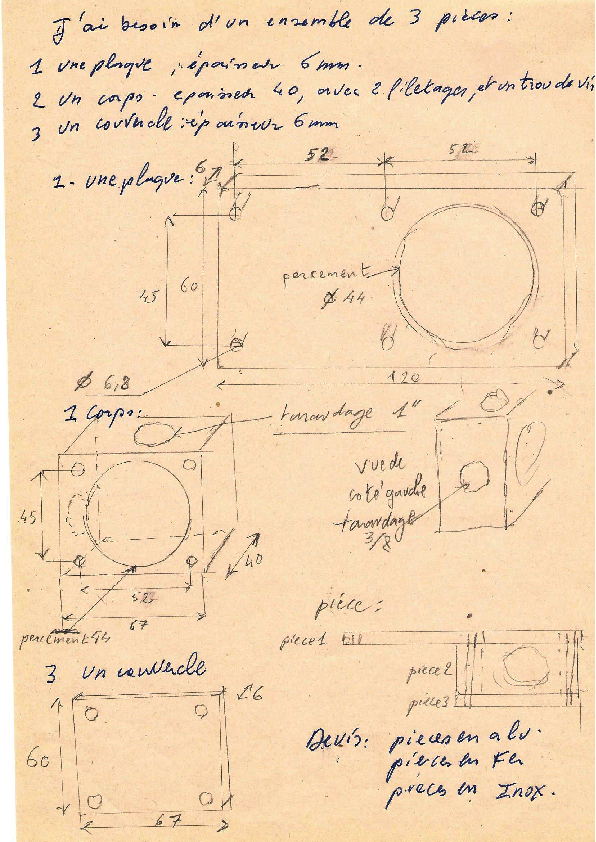 J'ai besoin d'un ensemble de 3 pièces :
1 une plaque ; épaisseur 6 mm.
2 un corps - epaisseur 40, avec 2 filetages, et un trou de vis
3 un couvercle : épaisseur 6 mm
1 - une plaque :
6
52
52
45
60
percement
Ø 44
120
Ø 6,8
1 Corps :
taraudage 1"
vue de
coté gauche
taraudage
3/8
45
40
52
67
percement 44
pièce :
piece 1
piece 2
piece 3
3 un couvercle
6
60
67
Devis : pieces en alu.
pieces en Fer
pieces en Inox.